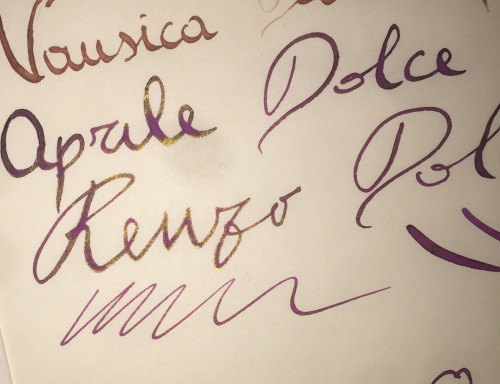 Vausica
Aprile Dolce
Renzo Dol